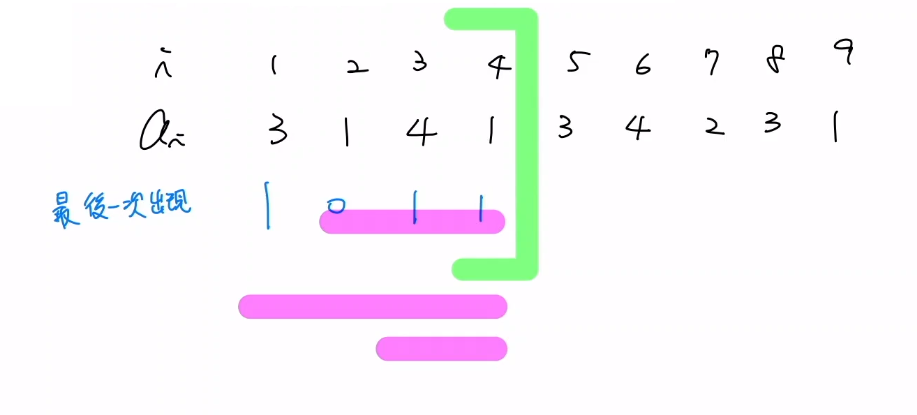 i 1 2 3 4 5 6 7 8 9
ai 3 1 4 1 3 4 2 3 1
最後一次出现 1 0 1 1